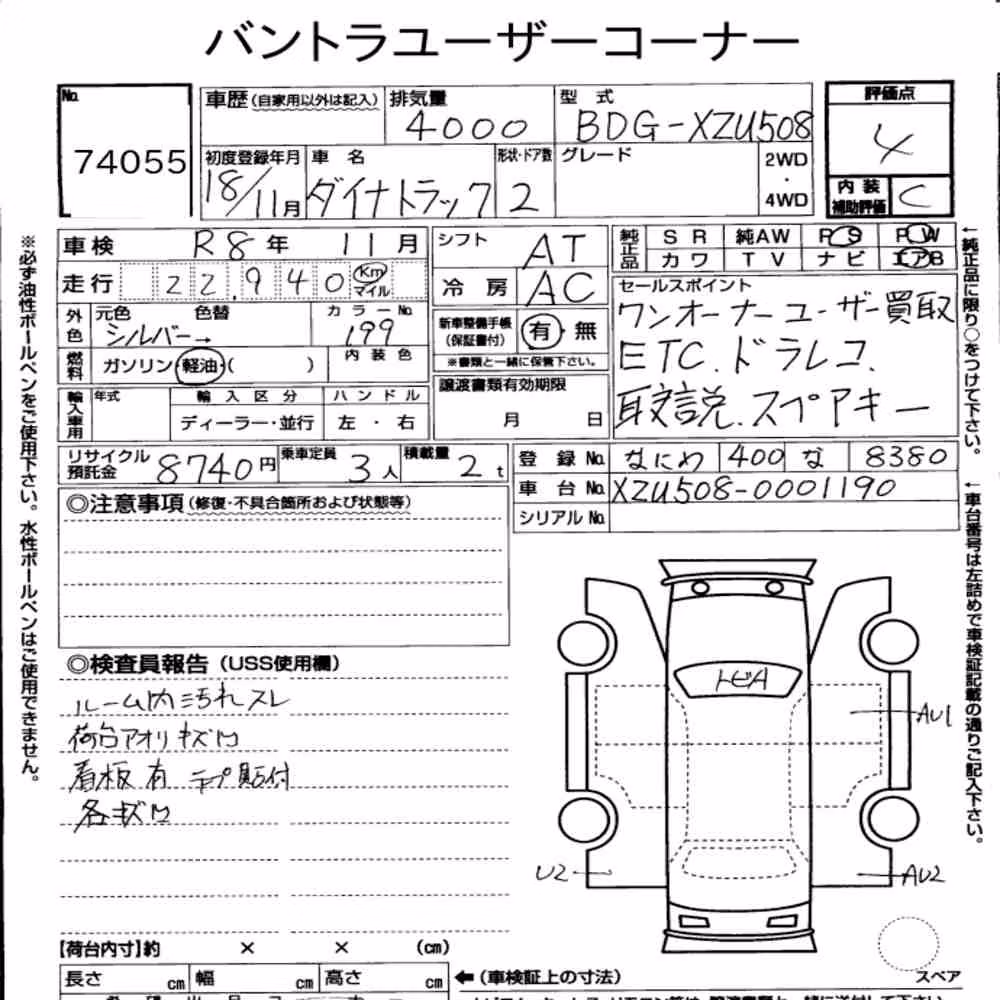 バントラユーザーコーナー
No. 74055
車歴(自家用以外は記入)
排気量 4000
型式 BDG-XZU508
評価点 4
初度登録年月 18/11月
車名 ダイナトラック
形状・ドア数 2
グレード
2WD・4WD
内装補助評価 C
車検 R8年 11月
シフト AT
純正品 SR 純AW PS PW
カワ TV ナビ エアB
走行 22,940 Km マイル
冷房 AC
セールスポイント
ワンオーナーユーザー買取
ETC.ドラレコ.
取説.スペアキー
外色 元色 シルバー→ 色替
カラーNo. 199
新車整備手帳(保証書付) 有・無
※書類と一緒に保管下さい。
燃料 ガソリン・軽油・( )
内装色
譲渡書類有効期限
月 日
輸入車用 年式
輸入区分 ディーラー・並行
ハンドル 左・右
リサイクル預託金 8740円
乗車定員 3人
積載量 2t
登録No. なにわ 400 な 8380
車台No. XZU508-0001190
シリアルNo.
◎注意事項(修復・不具合箇所および状態等)
◎検査員報告(USS使用欄)
ルーム内汚れスレ
荷台アオリキズ凹
看板有 テープ貼付
各キズ凹
トビA
AU1
U2
AU2
スペア
【荷台内寸】約 × × (cm)
長さ cm 幅 cm 高さ cm
←(車検証上の寸法)
※必ず油性ボールペンをご使用下さい。水性ボールペンはご使用できません。
←純正品に限り○をつけて下さい。
←車台番号は左詰めで車検証記載の通りご記入下さい。